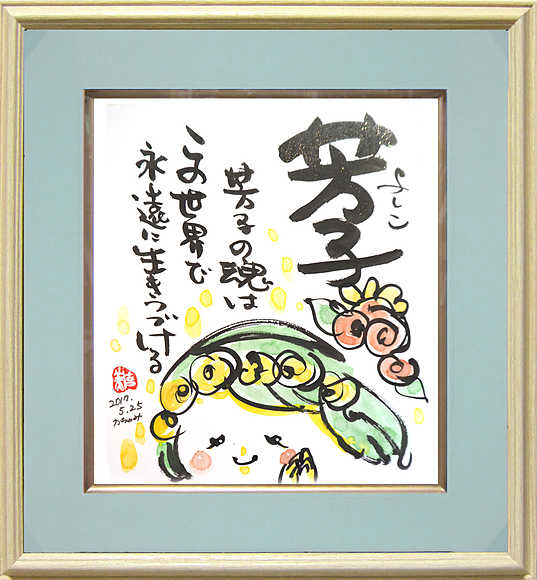 芳子
よしこ
芳子の魂は
この世界で
永遠に生きつづける
2017.
5.25